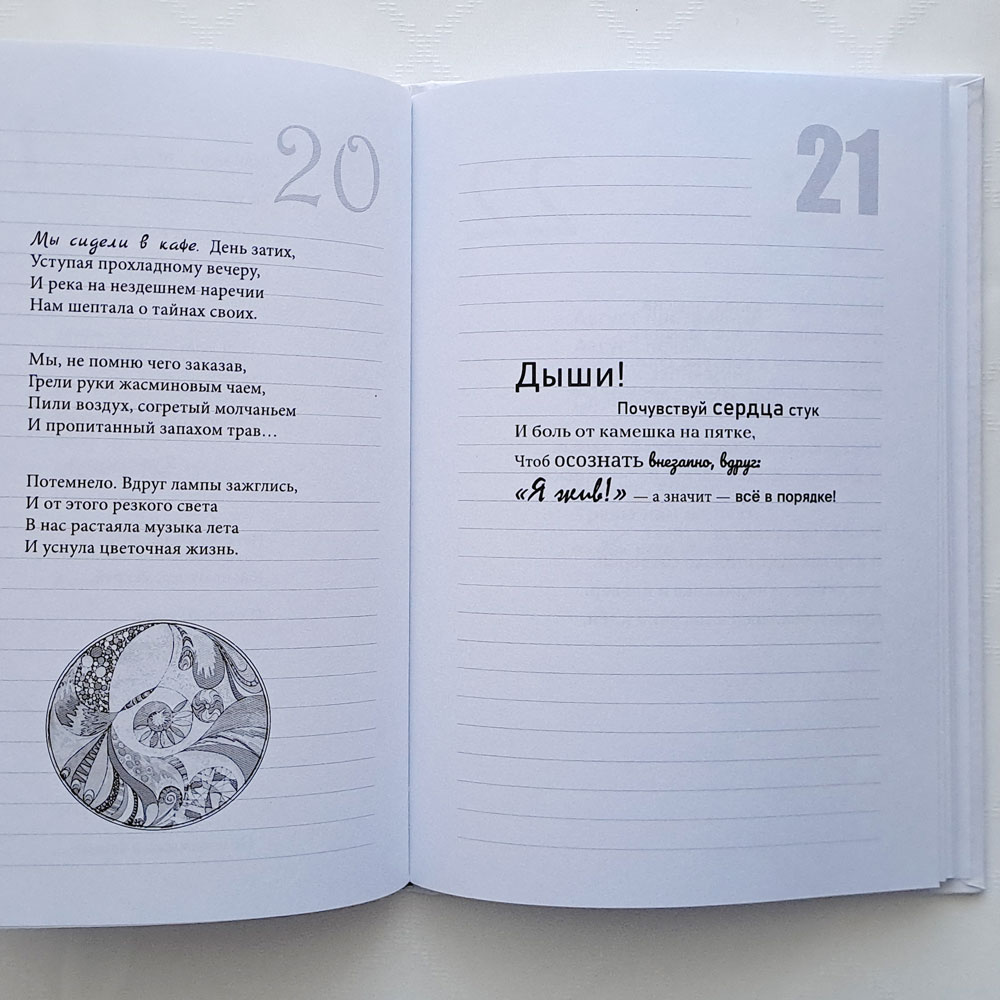 20
Мы сидели в кафе. День затих,
Уступая прохладному вечеру,
И река на нездешнем наречии
Нам шептала о тайнах своих.
Мы, не помню чего заказав,
Грели руки жасминовым чаем,
Пили воздух, согретый молчаньем
И пропитанный запахом трав…
Потемнело. Вдруг лампы зажглись,
И от этого резкого света
В нас растаяла музыка лета
И уснула цветочная жизнь.
21
Дыши!
Почувствуй сердца стук
И боль от камешка на пятке,
Чтоб осознать внезапно, вдруг:
«Я жив!» — а значит — всё в порядке!